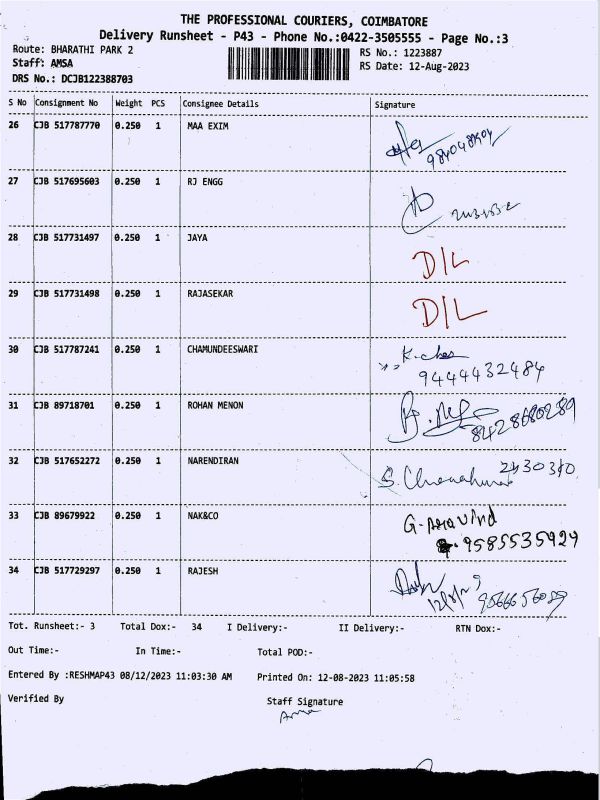 THE PROFESSIONAL COURIERS, COIMBATORE
Delivery Runsheet - P43 - Phone No.:0422-3505555 - Page No.:3
Route: BHARATHI PARK 2 RS No.: 1223887
Staff: AMSA RS Date: 12-Aug-2023
DRS No.: DCJB122388703
S No Consignment No Weight PCS Consignee Details Signature
26 CJB 517787770 0.250 1 MAA EXIM
27 CJB 517695603 0.250 1 RJ ENGG
28 CJB 517731497 0.250 1 JAYA D/L
29 CJB 517731498 0.250 1 RAJASEKAR D/L
30 CJB 517787241 0.250 1 CHAMUNDEESWARI
9444432484
31 CJB 89718701 0.250 1 ROHAN MENON
8428680289
32 CJB 517652272 0.250 1 NARENDIRAN
33 CJB 89679922 0.250 1 NAK&CO G. Aravind
9585535929
34 CJB 517729297 0.250 1 RAJESH
Tot. Runsheet:- 3 Total Dox:- 34 I Delivery:- II Delivery:- RTN Dox:-
Out Time:- In Time:- Total POD:-
Entered By :RESHMAP43 08/12/2023 11:03:30 AM Printed On: 12-08-2023 11:05:58
Verified By Staff Signature